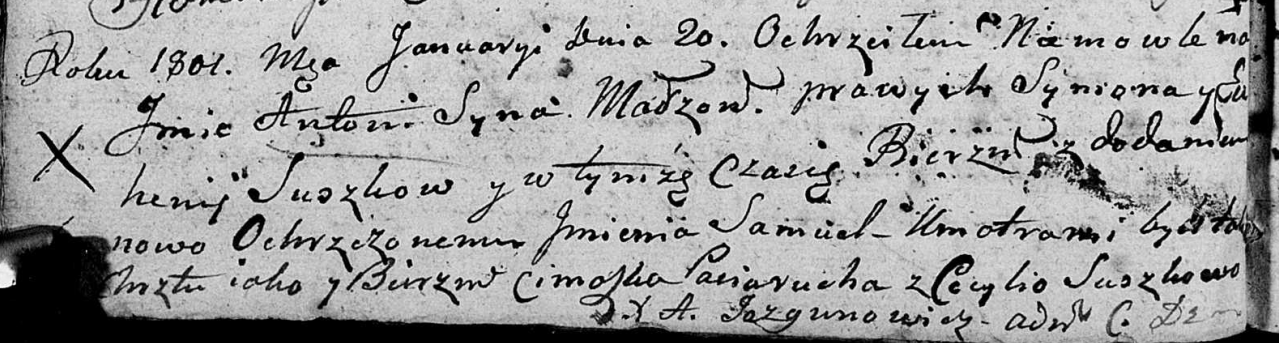 Roku 1801. Mca Januaryi dnia 20. Ochrzciłem Na mowle na
Jmie Antoni Syna Małżon. prawych Symona y Eu
henij Suszkow y w tymże Czasie Bierzm z dodaniem
nowo Ochrzczonemu Jmienia Samuel - Kmotrami byli to
chrztu iako y Bierzm Cimoszka Paciarucha z Cecylio Suszkowo
X A. Jazgunowicz - adm C. De